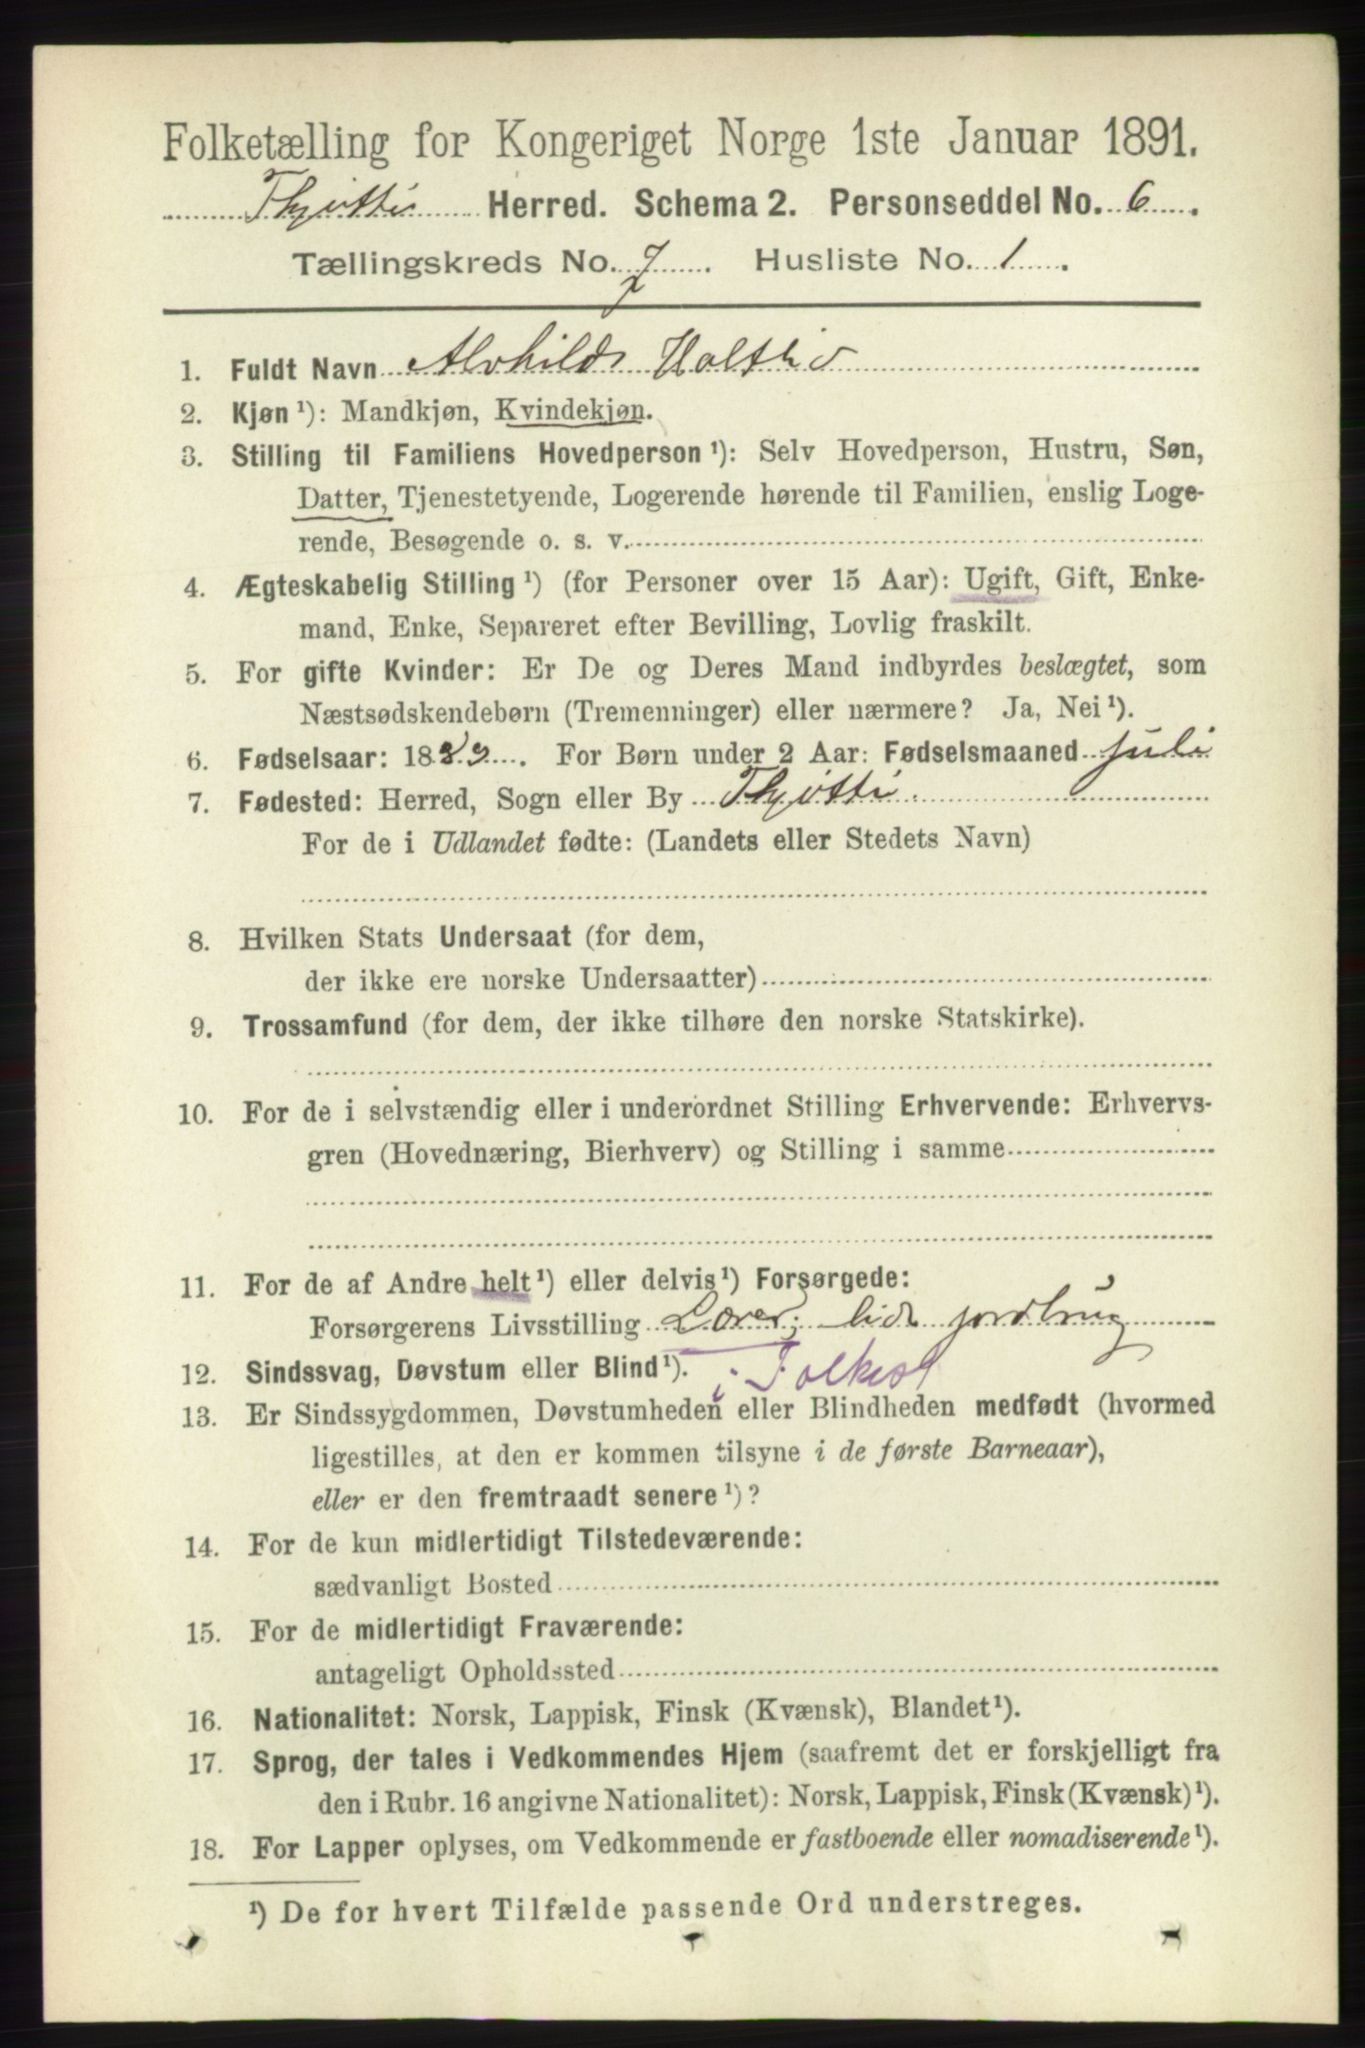 Folketælling for Kongeriget Norge 1ste Januar 1891.
Thjøttø Herred. Schema 2. Personseddel No. 6.
Tællingskreds No. 7. Husliste No. 1.
1. Fuldt Navn Alvhild Holtlid
2. Kjøn ¹): Mandkjøn, Kvindekjøn.
3. Stilling til Familiens Hovedperson ¹): Selv Hovedperson, Hustru, Søn,
Datter, Tjenestetyende, Logerende hørende til Familien, enslig Loge-
rende, Besøgende o. s. v.
4. Ægteskabelig Stilling ¹) (for Personer over 15 Aar): Ugift, Gift, Enke-
mand, Enke, Separeret efter Bevilling, Lovlig fraskilt.
5. For gifte Kvinder: Er De og Deres Mand indbyrdes beslægtet, som
Næstsødskendebørn (Tremenninger) eller nærmere? Ja, Nei ¹).
6. Fødselsaar: 1889. For Børn under 2 Aar: Fødselsmaaned juli
7. Fødested: Herred, Sogn eller By Thjøttø.
For de i Udlandet fødte: (Landets eller Stedets Navn)
8. Hvilken Stats Undersaat (for dem,
der ikke ere norske Undersaatter)
9. Trossamfund (for dem, der ikke tilhøre den norske Statskirke).
10. For de i selvstændig eller i underordnet Stilling Erhvervende: Erhvervs-
gren (Hovednæring, Bierhverv) og Stilling i samme
11. For de af Andre helt ¹) eller delvis ¹) Forsørgede:
Forsørgerens Livsstilling Lærer, lidt jordbrug
i Folkesk
12. Sindssvag, Døvstum eller Blind ¹).
13. Er Sindssygdommen, Døvstumheden eller Blindheden medfødt (hvormed
ligestilles, at den er kommen tilsyne i de første Barneaar),
eller er den fremtraadt senere ¹)?
14. For de kun midlertidigt Tilstedeværende:
sædvanligt Bosted
15. For de midlertidigt Fraværende:
antageligt Opholdssted
16. Nationalitet: Norsk, Lappisk, Finsk (Kvænsk), Blandet ¹).
17. Sprog, der tales i Vedkommendes Hjem (saafremt det er forskjelligt fra
den i Rubr. 16 angivne Nationalitet): Norsk, Lappisk, Finsk (Kvænsk) ¹).
18. For Lapper oplyses, om Vedkommende er fastboende eller nomadiserende ¹).
¹) De for hvert Tilfælde passende Ord understreges.